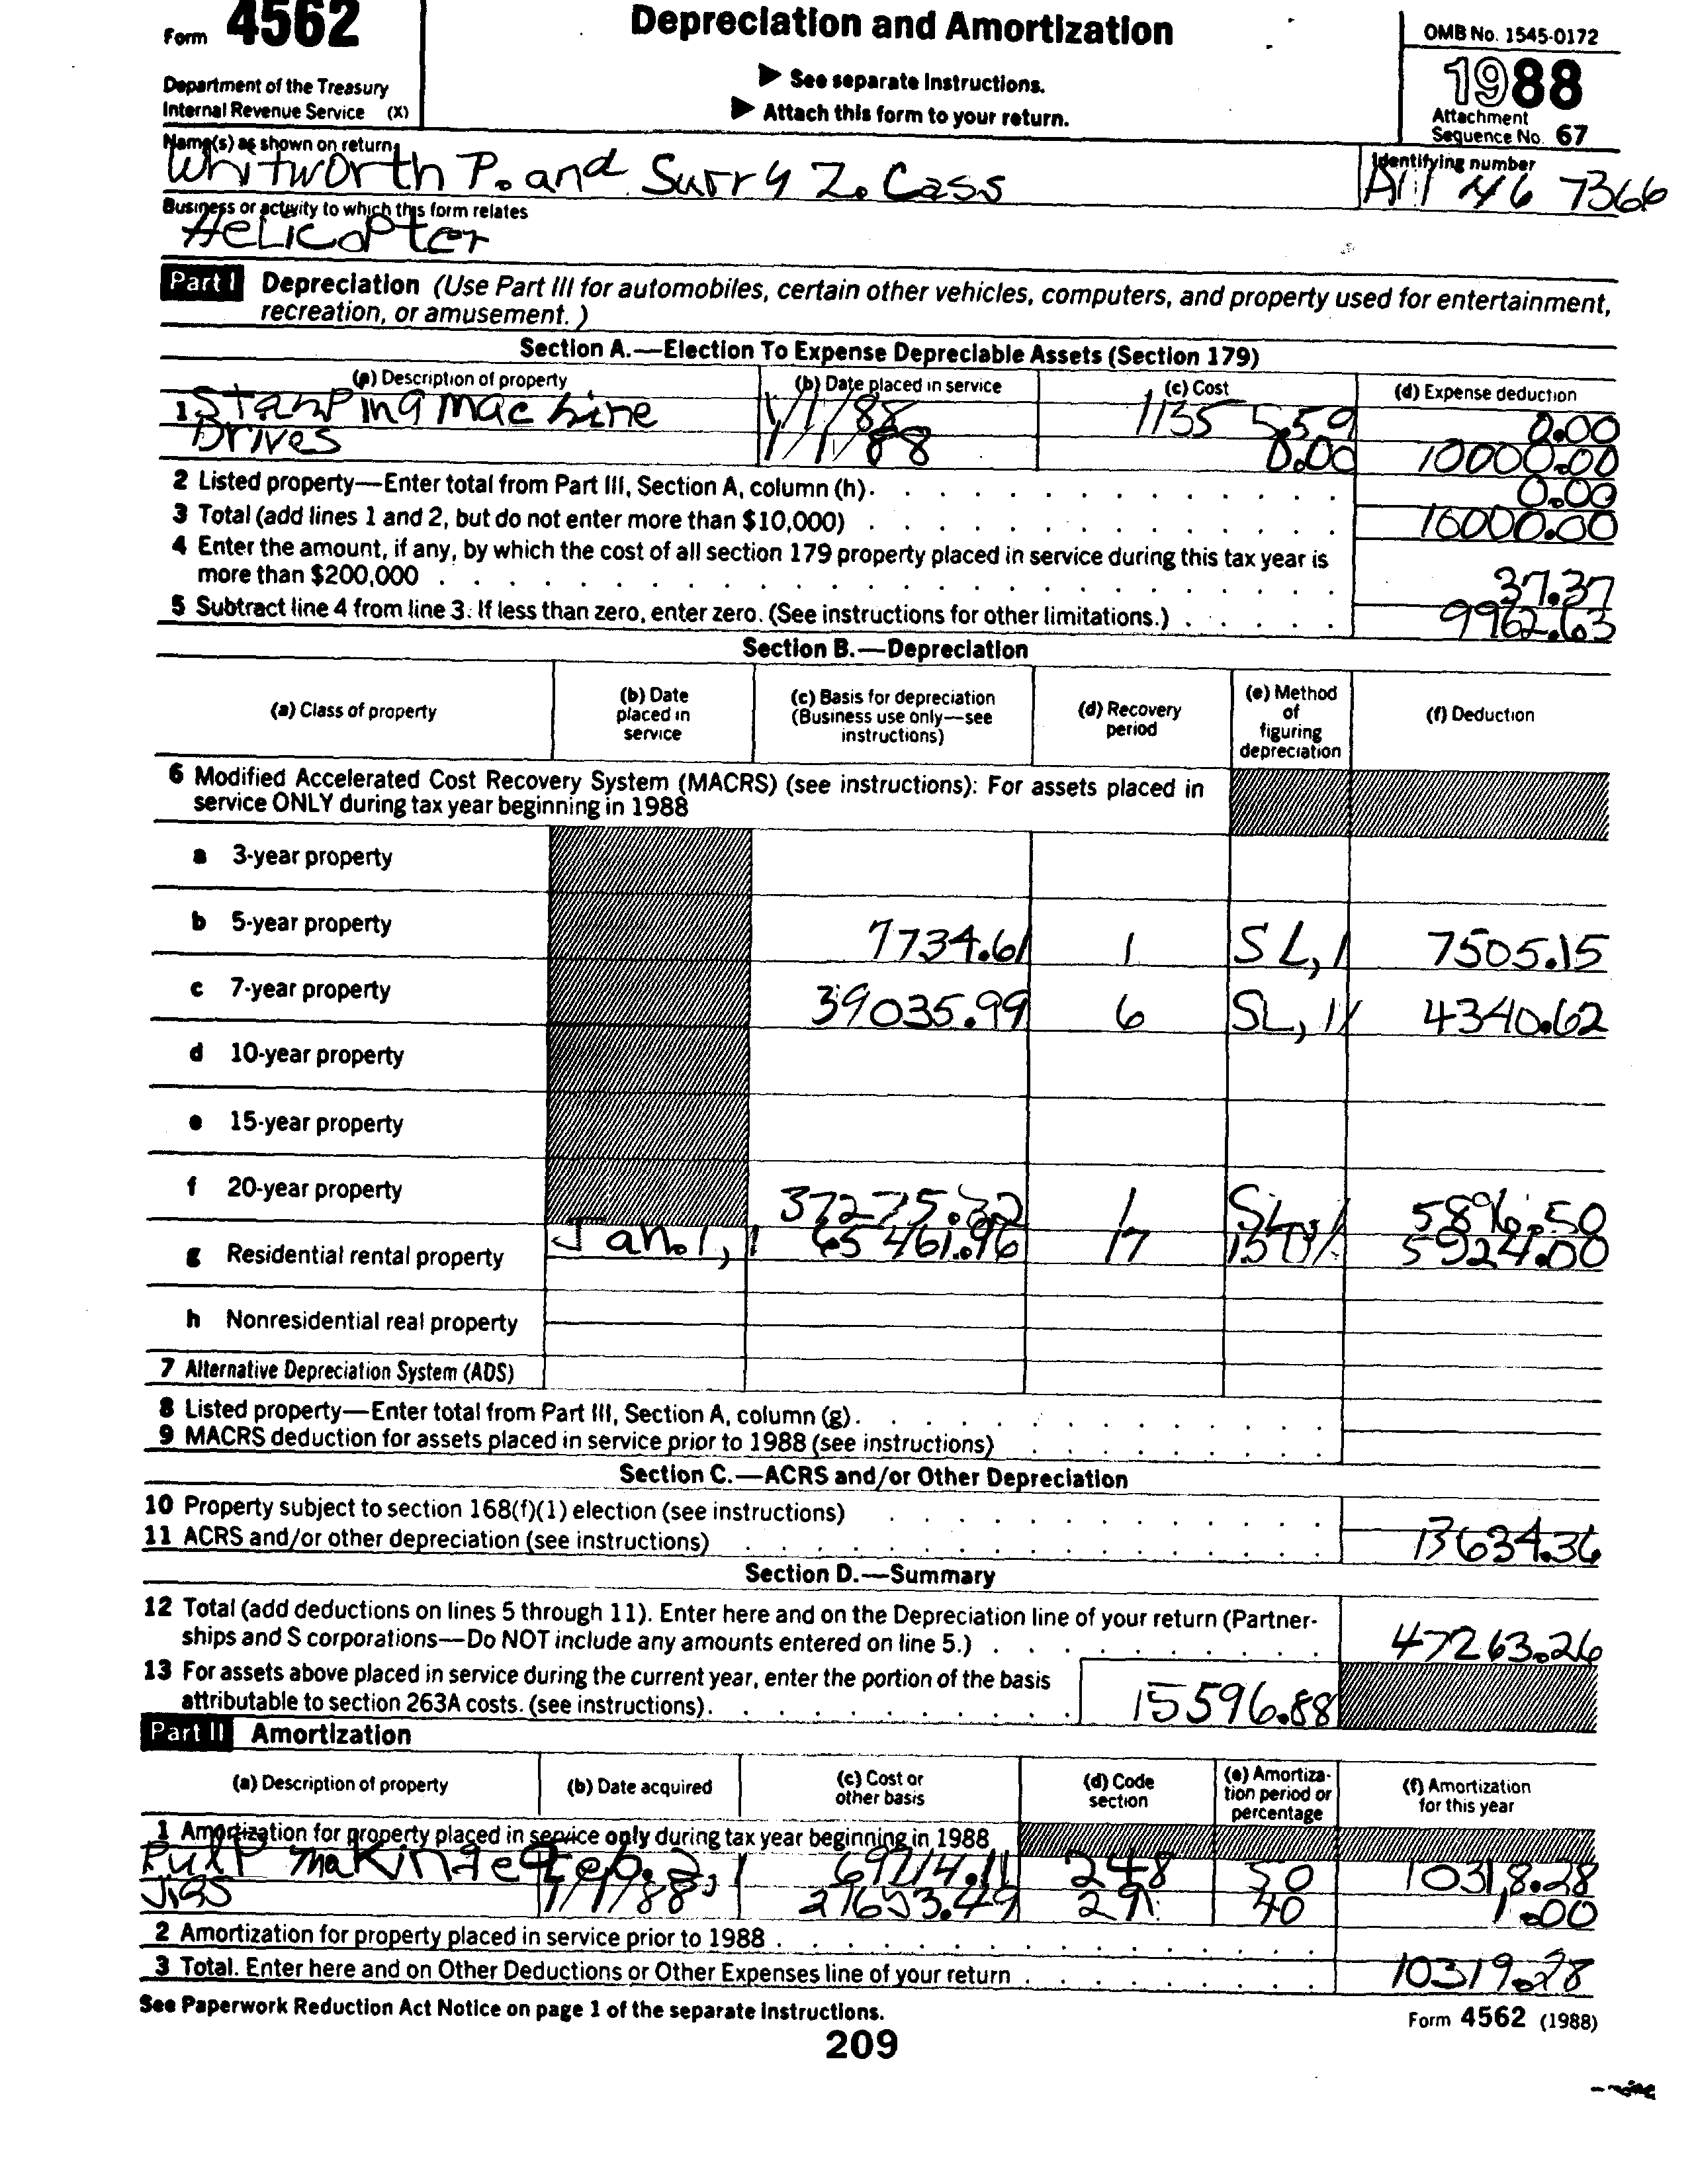 Form 4562
Department of the Treasury
Internal Revenue Service (X)
Depreciation and Amortization
▶ See separate Instructions.
▶ Attach this form to your return.
OMB No. 1545-0172
1988
Attachment
Sequence No. 67
Name(s) as shown on return
Whitworth P. and Surry Z. Cass
Identifying number
46 7366
Business or activity to which this form relates
Helicopter
Part I Depreciation (Use Part III for automobiles, certain other vehicles, computers, and property used for entertainment,
recreation, or amusement.)
Section A.—Election To Expense Depreciable Assets (Section 179)
(a) Description of property (b) Date placed in service (c) Cost (d) Expense deduction
1 Stamping machine 1/1/88 11355.59 0.00
Drives 1/1/88 0.00 10000.00
2 Listed property—Enter total from Part III, Section A, column (h). 0.00
3 Total (add lines 1 and 2, but do not enter more than $10,000) 10000.00
4 Enter the amount, if any, by which the cost of all section 179 property placed in service during this tax year is
more than $200,000 37.37
5 Subtract line 4 from line 3. If less than zero, enter zero. (See instructions for other limitations.) 9962.63
Section B.—Depreciation
(a) Class of property
(b) Date
placed in
service
(c) Basis for depreciation
(Business use only—see
instructions)
(d) Recovery
period
(e) Method
of
figuring
depreciation
(f) Deduction
6 Modified Accelerated Cost Recovery System (MACRS) (see instructions): For assets placed in
service ONLY during tax year beginning in 1988
a 3-year property
b 5-year property 7734.61 1 SL, 1 7505.15
c 7-year property 39035.99 6 SL, 4340.62
d 10-year property
e 15-year property
f 20-year property 37275.32 1 SL 5896.50
g Residential rental property Jan. 1, 1 65461.96 17 5924.00
h Nonresidential real property
7 Alternative Depreciation System (ADS)
8 Listed property—Enter total from Part III, Section A, column (g).
9 MACRS deduction for assets placed in service prior to 1988 (see instructions)
Section C.—ACRS and/or Other Depreciation
10 Property subject to section 168(f)(1) election (see instructions)
11 ACRS and/or other depreciation (see instructions) 13634.36
Section D.—Summary
12 Total (add deductions on lines 5 through 11). Enter here and on the Depreciation line of your return (Partner-
ships and S corporations—Do NOT include any amounts entered on line 5.) 47263.26
13 For assets above placed in service during the current year, enter the portion of the basis
attributable to section 263A costs. (see instructions). 15596.88
Part II Amortization
(a) Description of property
(b) Date acquired
(c) Cost or
other basis
(d) Code
section
(e) Amortiza-
tion period or
percentage
(f) Amortization
for this year
1 Amortization for property placed in service only during tax year beginning in 1988
Pulp making eq Feb. 2, 1 69714.11 248 50 10318.28
Jigs 1/1/88 21653.49 291 40 1.00
2 Amortization for property placed in service prior to 1988
3 Total. Enter here and on Other Deductions or Other Expenses line of your return 10319.28
See Paperwork Reduction Act Notice on page 1 of the separate Instructions.
Form 4562 (1988)
209